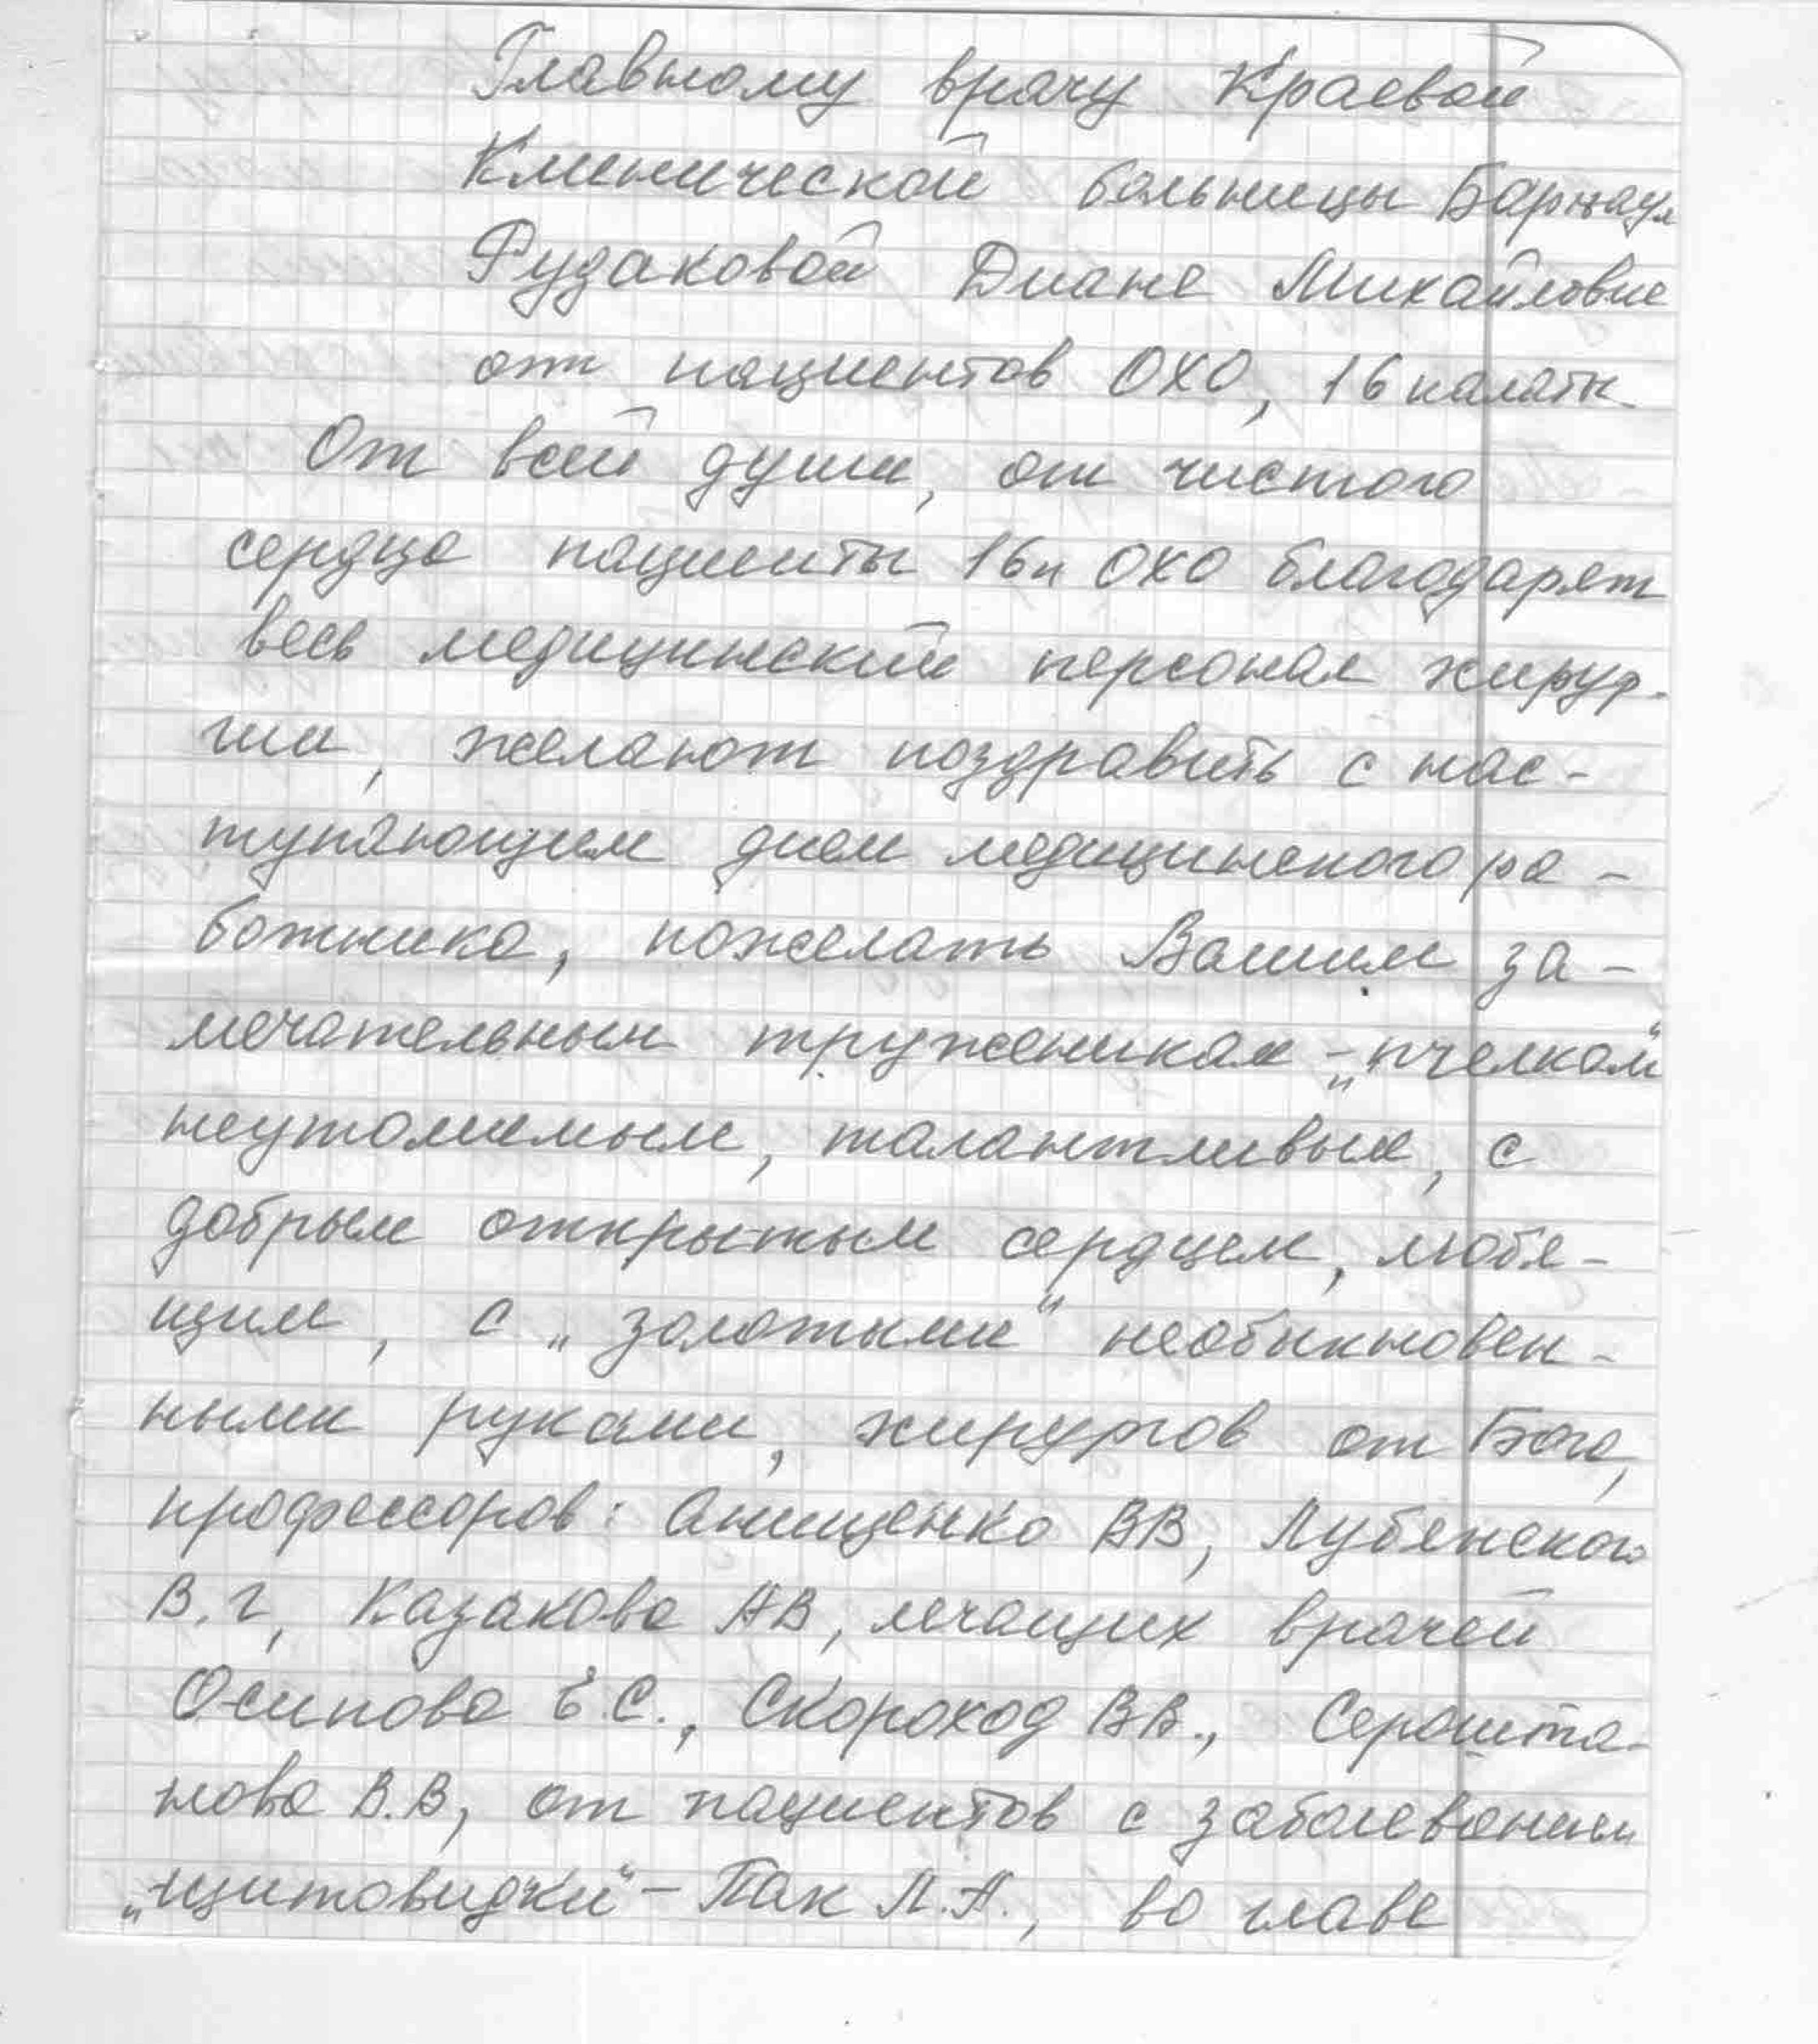 Главному врачу Краевой
Клинической больницы Барнаул
Рудаковой Диане Михайловне
от пациентов ОХО, 16 палаты
От всей души, от чистого
сердца пациенты 16п ОХО благодарят
весь медицинский персонал хирур-
гии, желают поздравить с нас-
тупающим днем медицинского ра-
ботника, пожелать Вашим за-
мечательным труженикам - „пчелкам"
неутомимым, талантливым, с
добрым открытым сердцем, любя-
щим, с „золотыми" необыкновен-
ными руками, хирургов от Бога,
профессоров: Анищенко ВВ, Лубянского
В.Г, Казакова АВ, лечащих врачей
Осипова Е.С., Скороход ВВ., Серошта-
нова В.В, от пациентов с заболеванием
„щитовидки" - Пак Л.А., во главе